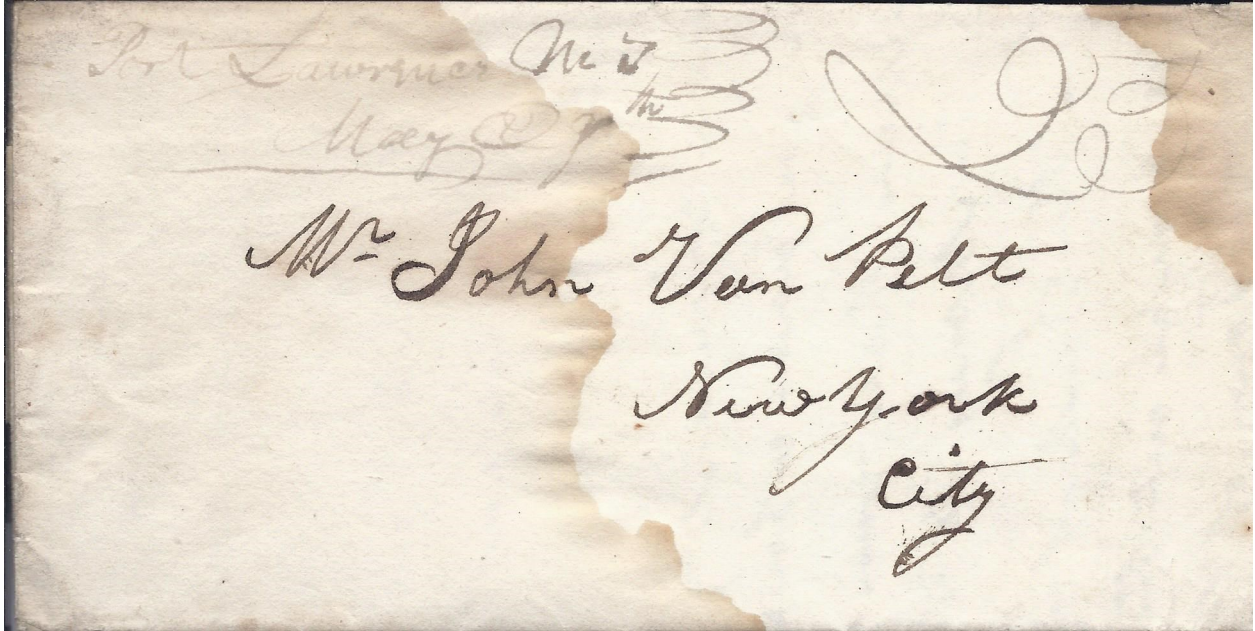 Port Lawrence M T 25
May 27th
Mr John Van Pelt
New York
City